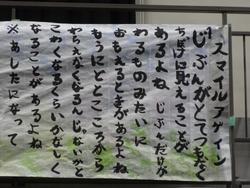 スマイルアゲイン
じぶんがとてつもなく
ちっぽけに見えることが
あるよね じぶんだけが
わるものみたいに
おもえるときがあるよね
もうにどとこころから
わらえなくなるんじゃないかと
こわくなるくらいかなしく
なることがあるよね
※あしたになって